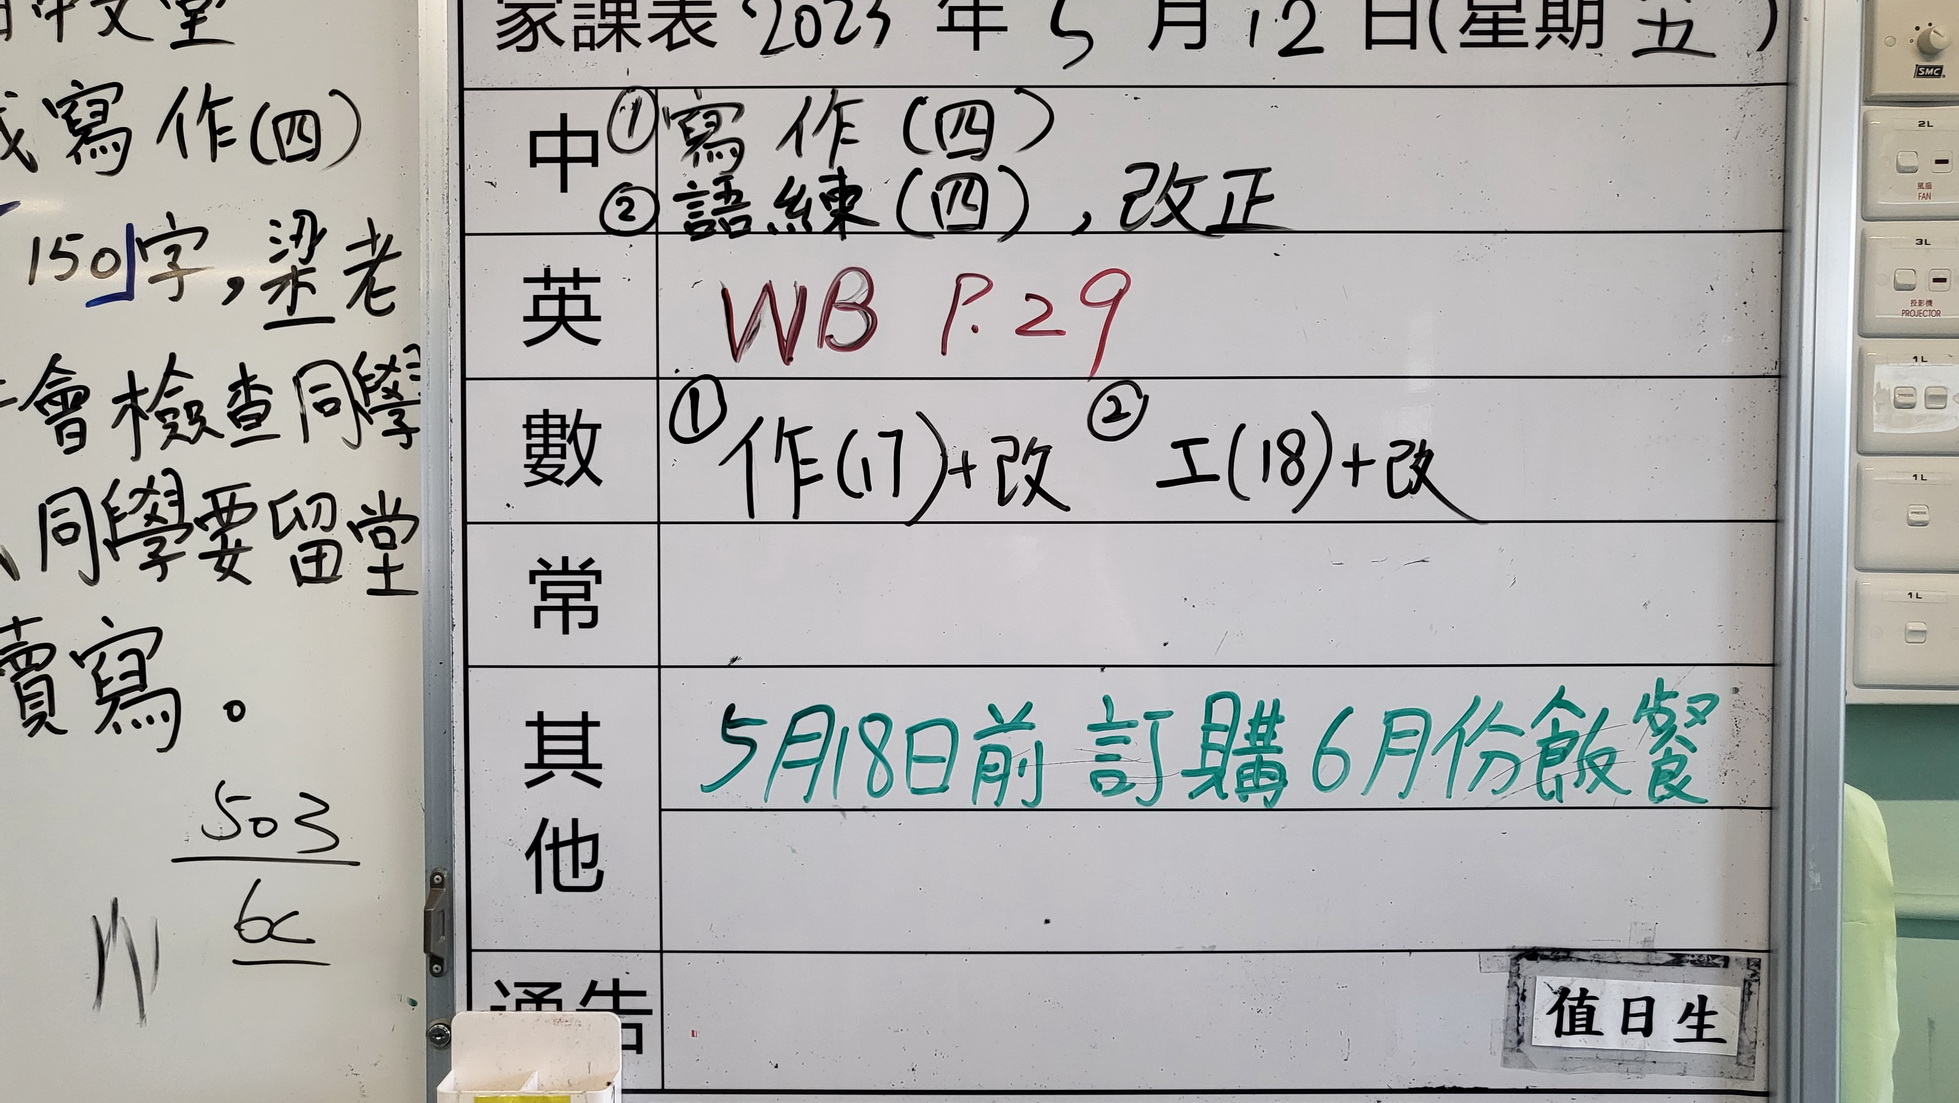 中文堂
寫作(四)
150字,梁老
會檢查同學
同學要留堂
寫。
503
6c
家課表 2023 年 5 月 12 日(星期五)
中 ① 寫作(四)
② 語練(四),改正
英 WB P.29
數 ① 作(17)+改 ② 工(18)+改
常
其他 5月18日前訂購6月份飯餐
通告
值日生
SMC
2L
風扇
FAN
3L
投影機
PROJECTOR
1L
1L
PRESS
1L